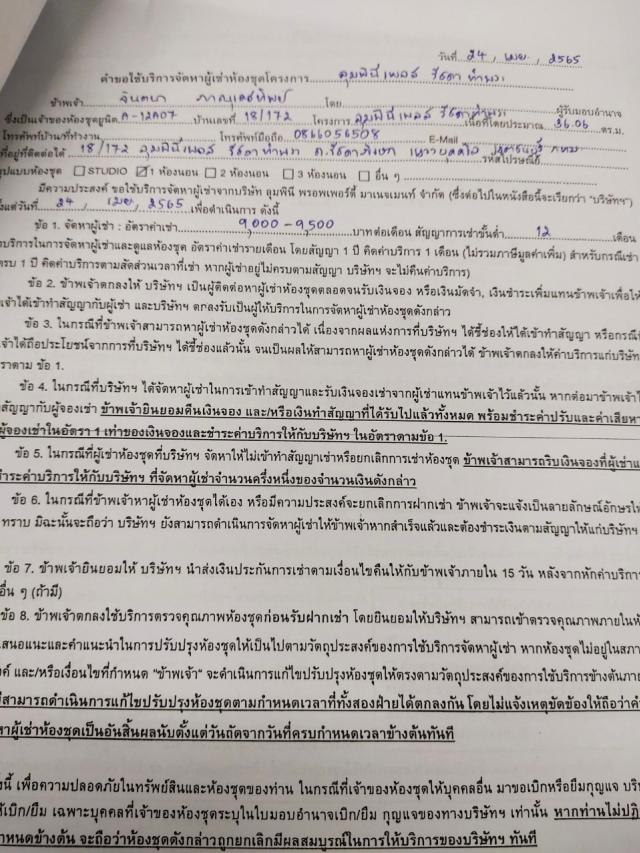 วันที่ 24 , เมย. , 2565
คำขอใช้บริการจัดหาผู้เช่าห้องชุดโครงการ ลุมพินีเพลส รัชดา ท่าพระ
ข้าพเจ้า จินตนา โดย ผู้รับมอบอำนาจ
ซึ่งเป็นเจ้าของห้องชุดยูนิต A-12A07 บ้านเลขที่ 18/172 โครงการ ลุมพินีเพลส รัชดาท่าพระ เนื้อที่โดยประมาณ 36.06 ตร.ม.
โทรศัพท์บ้านที่ทำงาน โทรศัพท์มือถือ 0866056508 E-Mail
ที่อยู่ที่ติดต่อได้ 18/172 ลุมพินีเพลส รัชดาท่าพระ ถ.รัชดาภิเษก รหัสไปรษณีย์ กทม
รูปแบบห้องชุด STUDIO 1 ห้องนอน 2 ห้องนอน 3 ห้องนอน อื่น ๆ
มีความประสงค์ ขอใช้บริการจัดหาผู้เช่าจากบริษัท ลุมพินี พรอพเพอร์ตี้ มาเนจเมนท์ จำกัด (ซึ่งต่อไปในหนังสือนี้จะเรียกว่า "บริษัทฯ")
ตั้งแต่วันที่ 24 , เมย , 2565 เพื่อดำเนินการ ดังนี้
ข้อ 1. จัดหาผู้เช่า : อัตราค่าเช่า 9,000 - 9,500 บาทต่อเดือน สัญญาการเช่าขั้นต่ำ 12 เดือน
บริการในการจัดหาผู้เช่าและดูแลห้องชุด อัตราค่าเช่ารายเดือน โดยสัญญา 1 ปี คิดค่าบริการ 1 เดือน (ไม่รวมภาษีมูลค่าเพิ่ม) สำหรับกรณีเช่า
ครบ 1 ปี คิดค่าบริการตามสัดส่วนเวลาที่เช่า หากผู้เช่าอยู่ไม่ครบตามสัญญา บริษัทฯ จะไม่คืนค่าบริการ)
ข้อ 2. ข้าพเจ้าตกลงให้ บริษัทฯ เป็นผู้ติดต่อหาผู้เช่าห้องชุดตลอดจนรับเงินจอง หรือเงินมัดจำ, เงินชำระเพิ่มแทนข้าพเจ้าเพื่อให้
เจ้าได้เข้าทำสัญญากับผู้เช่า และบริษัทฯ ตกลงรับเป็นผู้ให้บริการในการจัดหาผู้เช่าห้องชุดดังกล่าว
ข้อ 3. ในกรณีที่ข้าพเจ้าสามารถหาผู้เช่าห้องชุดดังกล่าวได้ เนื่องจากผลแห่งการที่บริษัทฯ ได้ชี้ช่องให้ได้เข้าทำสัญญา หรือกรณี
เจ้าได้ถือประโยชน์จากการที่บริษัทฯ ได้ชี้ช่องแล้วนั้น จนเป็นผลให้สามารถหาผู้เช่าห้องชุดดังกล่าวได้ ข้าพเจ้าตกลงให้ค่าบริการแก่บริษัท
ราตาม ข้อ 1.
ข้อ 4. ในกรณีที่บริษัทฯ ได้จัดหาผู้เช่าในการเข้าทำสัญญาและรับเงินจองเช่าจากผู้เช่าแทนข้าพเจ้าไว้แล้วนั้น หากต่อมาข้าพเจ้า
สัญญากับผู้จองเช่า ข้าพเจ้ายินยอมคืนเงินจอง และ/หรือเงินทำสัญญาที่ได้รับไปแล้วทั้งหมด พร้อมชำระค่าปรับและค่าเสียหาย
ผู้จองเช่าในอัตรา 1 เท่าของเงินจองและชำระค่าบริการให้กับบริษัทฯ ในอัตราตามข้อ 1.
ข้อ 5. ในกรณีที่ผู้เช่าห้องชุดที่บริษัทฯ จัดหาให้ไม่เข้าทำสัญญาเช่าหรือยกเลิกการเช่าห้องชุด ข้าพเจ้าสามารถริบเงินจองที่ผู้เช่า
ชำระค่าบริการให้กับบริษัทฯ ที่จัดหาผู้เช่าจำนวนครึ่งหนึ่งของจำนวนเงินดังกล่าว
ข้อ 6. ในกรณีที่ข้าพเจ้าหาผู้เช่าห้องชุดได้เอง หรือมีความประสงค์จะยกเลิกการฝากเช่า ข้าพเจ้าจะแจ้งเป็นลายลักษณ์อักษรให้
ทราบ มิฉะนั้นจะถือว่า บริษัทฯ ยังสามารถดำเนินการจัดหาผู้เช่าให้ข้าพเจ้าหากสำเร็จแล้วและต้องชำระเงินตามสัญญาให้แก่บริษัทฯ
ข้อ 7. ข้าพเจ้ายินยอมให้ บริษัทฯ นำส่งเงินประกันการเช่าตามเงื่อนไขคืนให้กับข้าพเจ้าภายใน 15 วัน หลังจากหักค่าบริการ
อื่น ๆ (ถ้ามี)
ข้อ 8. ข้าพเจ้าตกลงใช้บริการตรวจคุณภาพห้องชุดก่อนรับฝากเช่า โดยยินยอมให้บริษัทฯ สามารถเข้าตรวจคุณภาพภายในห้
เสนอแนะและคำแนะนำในการปรับปรุงห้องชุดให้เป็นไปตามวัตถุประสงค์ของการใช้บริการจัดหาผู้เช่า หากห้องชุดไม่อยู่ในสภา
งค์ และ/หรือเงื่อนไขที่กำหนด "ข้าพเจ้า" จะดำเนินการแก้ไขปรับปรุงห้องชุดให้ตรงตามวัตถุประสงค์ของการใช้บริการข้างต้นภาย
ม่สามารถดำเนินการแก้ไขปรับปรุงห้องชุดตามกำหนดเวลาที่ทั้งสองฝ่ายได้ตกลงกัน โดยไม่แจ้งเหตุขัดข้องให้ถือว่าคำ
หาผู้เช่าห้องชุดเป็นอันสิ้นผลนับตั้งแต่วันถัดจากวันที่ครบกำหนดเวลาข้างต้นทันที
ั้งนี้ เพื่อความปลอดภัยในทรัพย์สินและห้องชุดของท่าน ในกรณีที่เจ้าของห้องชุดให้บุคคลอื่น มาขอเบิกหรือยืมกุญแจ บริ
ให้เบิก/ยืม เฉพาะบุคคลที่เจ้าของห้องชุดระบุในใบมอบอำนาจเบิก/ยืม กุญแจของทางบริษัทฯ เท่านั้น หากท่านไม่ปฏิ
กำหนดข้างต้น จะถือว่าห้องชุดดังกล่าวถูกยกเลิกมีผลสมบูรณ์ในการให้บริการของบริษัทฯ ทันที